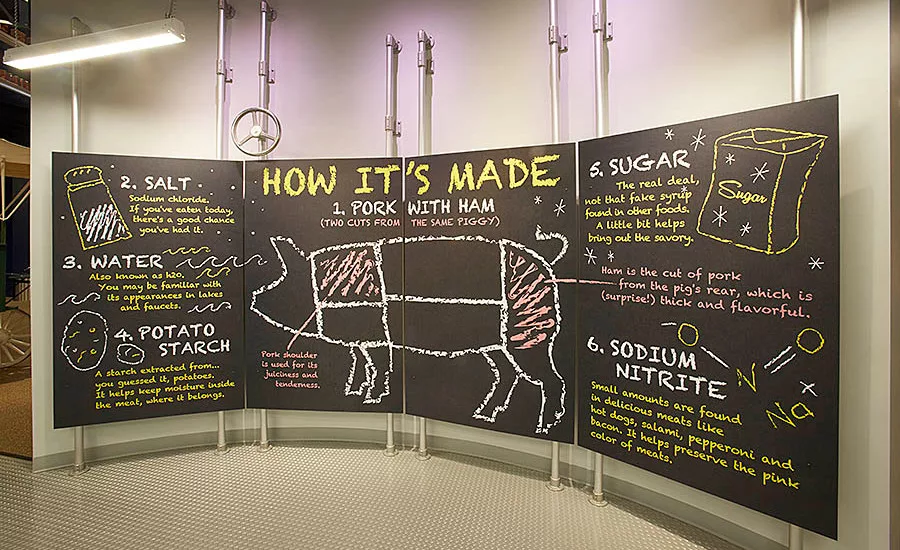 HOW IT'S MADE
1. PORK WITH HAM
(TWO CUTS FROM THE SAME PIGGY)
Pork shoulder
is used for its
juiciness and
tenderness.
Ham is the cut of pork
from the pig's rear, which is
(surprise!) thick and flavorful.
2. SALT
Sodium chloride.
If you've eaten today,
there's a good chance
you've had it.
3. WATER
Also known as h2o.
You may be familiar with
its appearances in lakes
and faucets.
4. POTATO
STARCH
A starch extracted from...
you guessed it, potatoes.
It helps keep moisture inside
the meat, where it belongs.
5. SUGAR
The real deal,
not that fake syrup
found in other foods.
A little bit helps
bring out the savory.
Sugar
6. SODIUM
NITRITE
Small amounts are found
in delicious meats like
hot dogs, salami, pepperoni and
bacon. It helps preserve the pink
color of meats.
N
Na